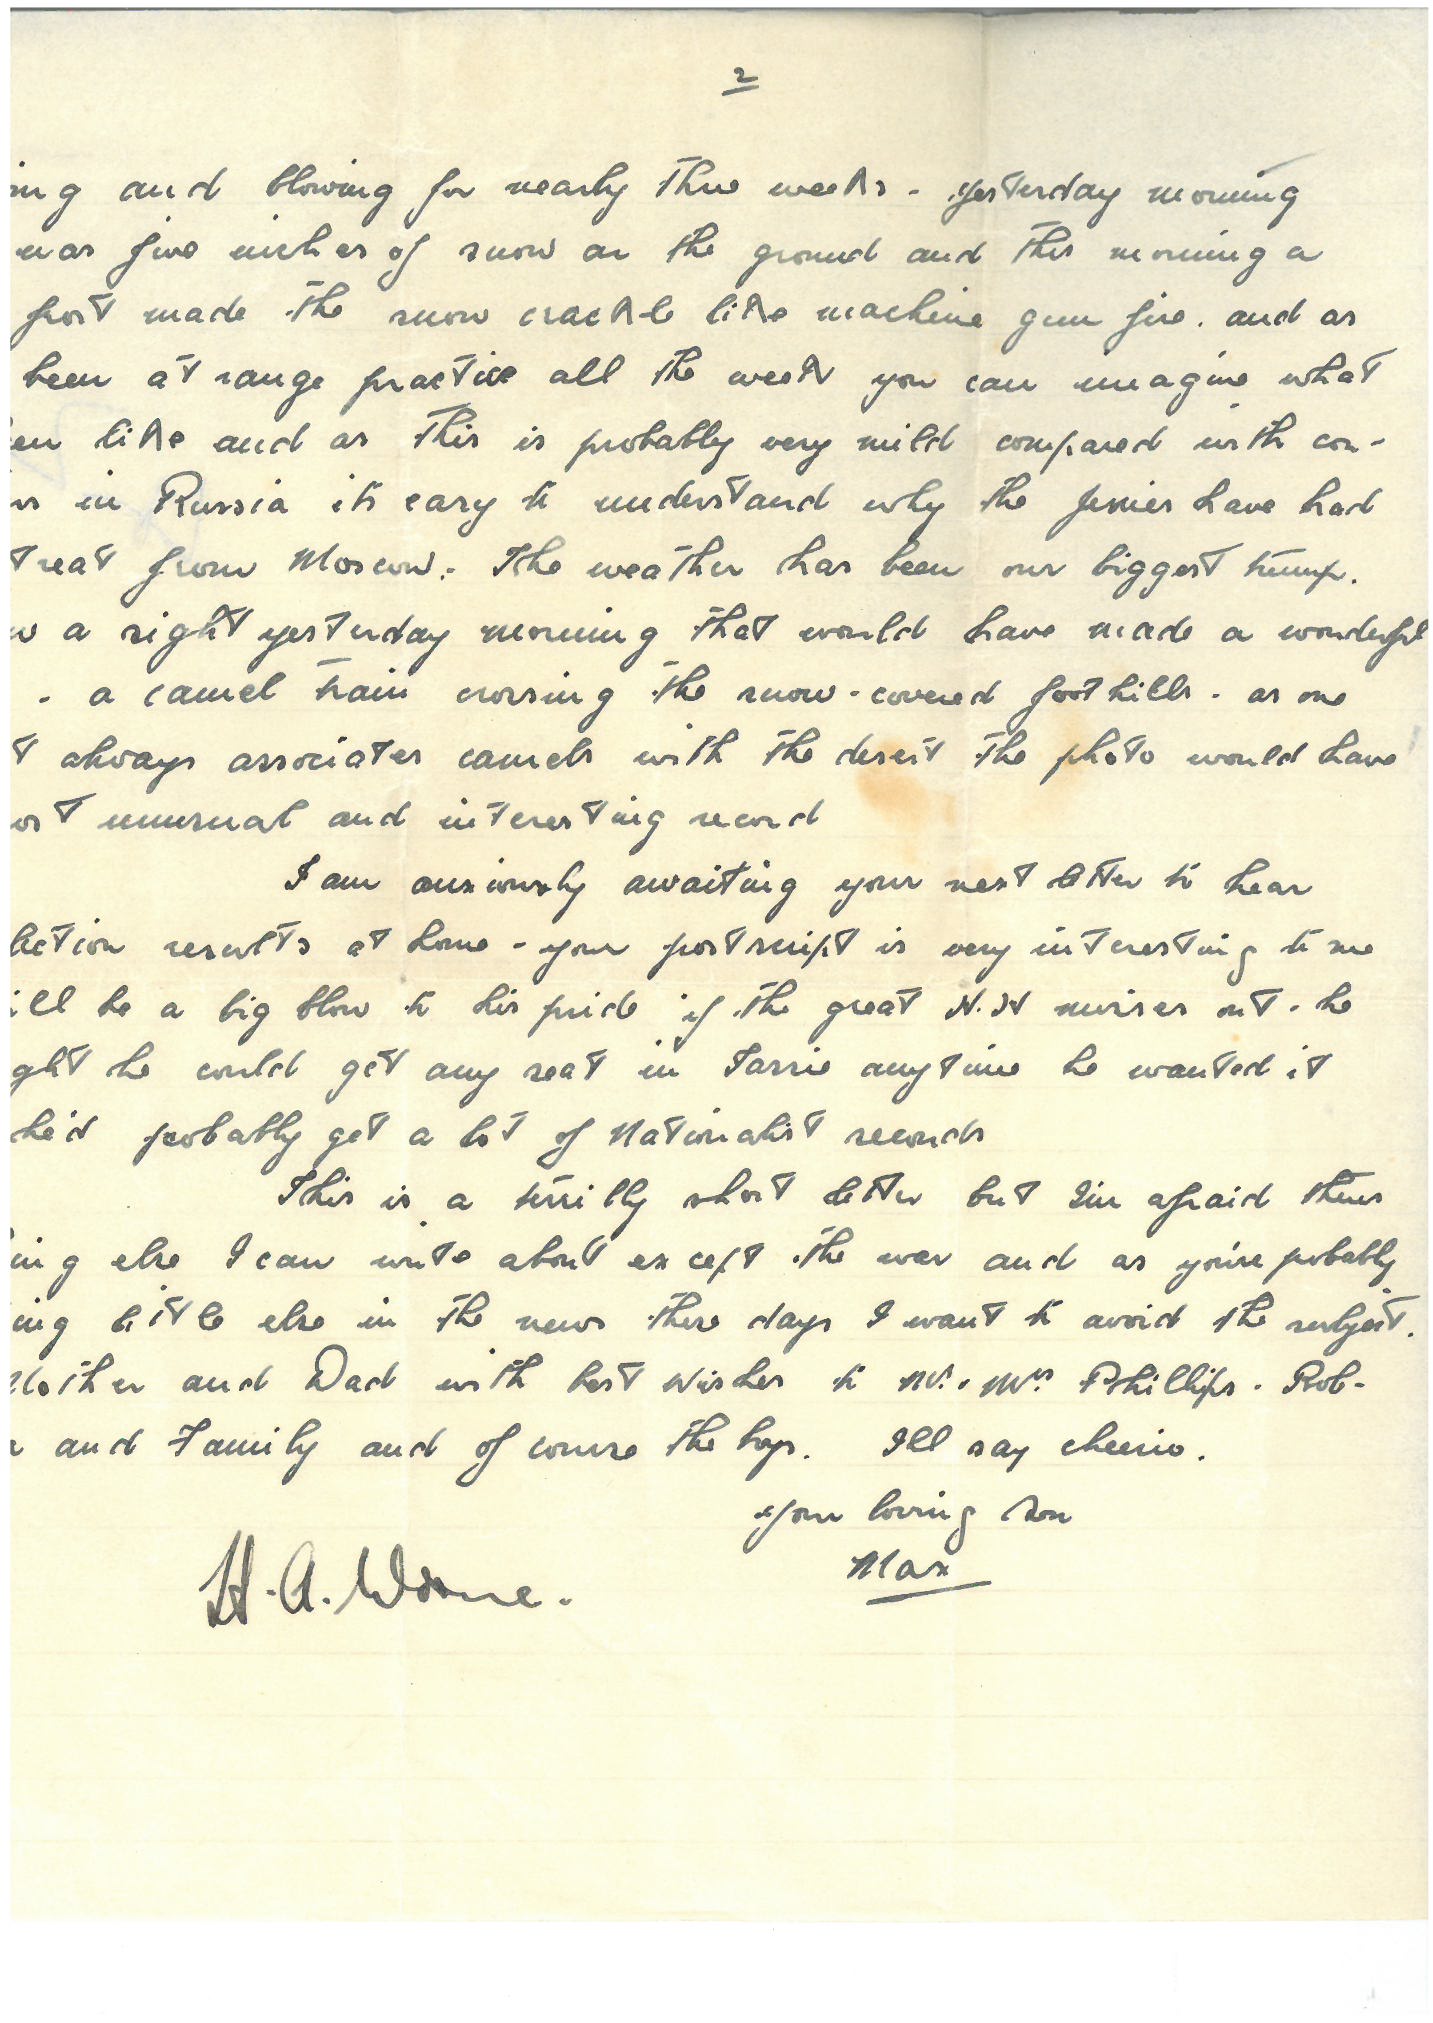 2
ing and blowing for nearly three weeks - yesterday morning
was five inches of snow on the ground and this morning a
frost made the snow crackle like machine gun fire. and as
been at range practice all the week you can imagine what
en like and as this is probably very mild compared with con-
ns in Russia its easy to understand why the Jerries have had
treat from Moscow. The weather has been our biggest trump.
w a sight yesterday morning that would have made a wonderful
- a camel train crossing the snow-covered foothills - as one
t always associates camels with the desert the photo would have
ost unusual and interesting record
I am anxiously awaiting your next letter to hear
lection results at home - your postscript is very interesting to me
ill be a big blow to his pride if the great misses out - he
ght he could get any seat in Tassie anytime he wanted it
he'd probably get a lot of Nationalist seconds
This is a terribly short letter but I'm afraid theres
ing else I can write about except the war and as you're probably
ing little else in the news these days I want to avoid the subject.
Mother and Dad with best wishes to Mr. Mrs Phillips. Rob-
and Family and of course the boys. I'll say cheerio.
your loving son
Max
H. A.